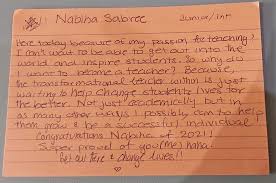 Nabiha Sabree Junior/Int
Here today because of my passion for teaching!
I can't wait to be able to get out into the
world and inspire students. So why do
I want to become a teacher? Because,
the transformational teacher within is just
waiting to help change students lives for
the better. Not just academically but in
as many other ways I possibly can to help
them grow & be a successful individual!
Congratulations Nabiha of 2021!
Super proud of you (me) haha.
Get out there & change lives!!